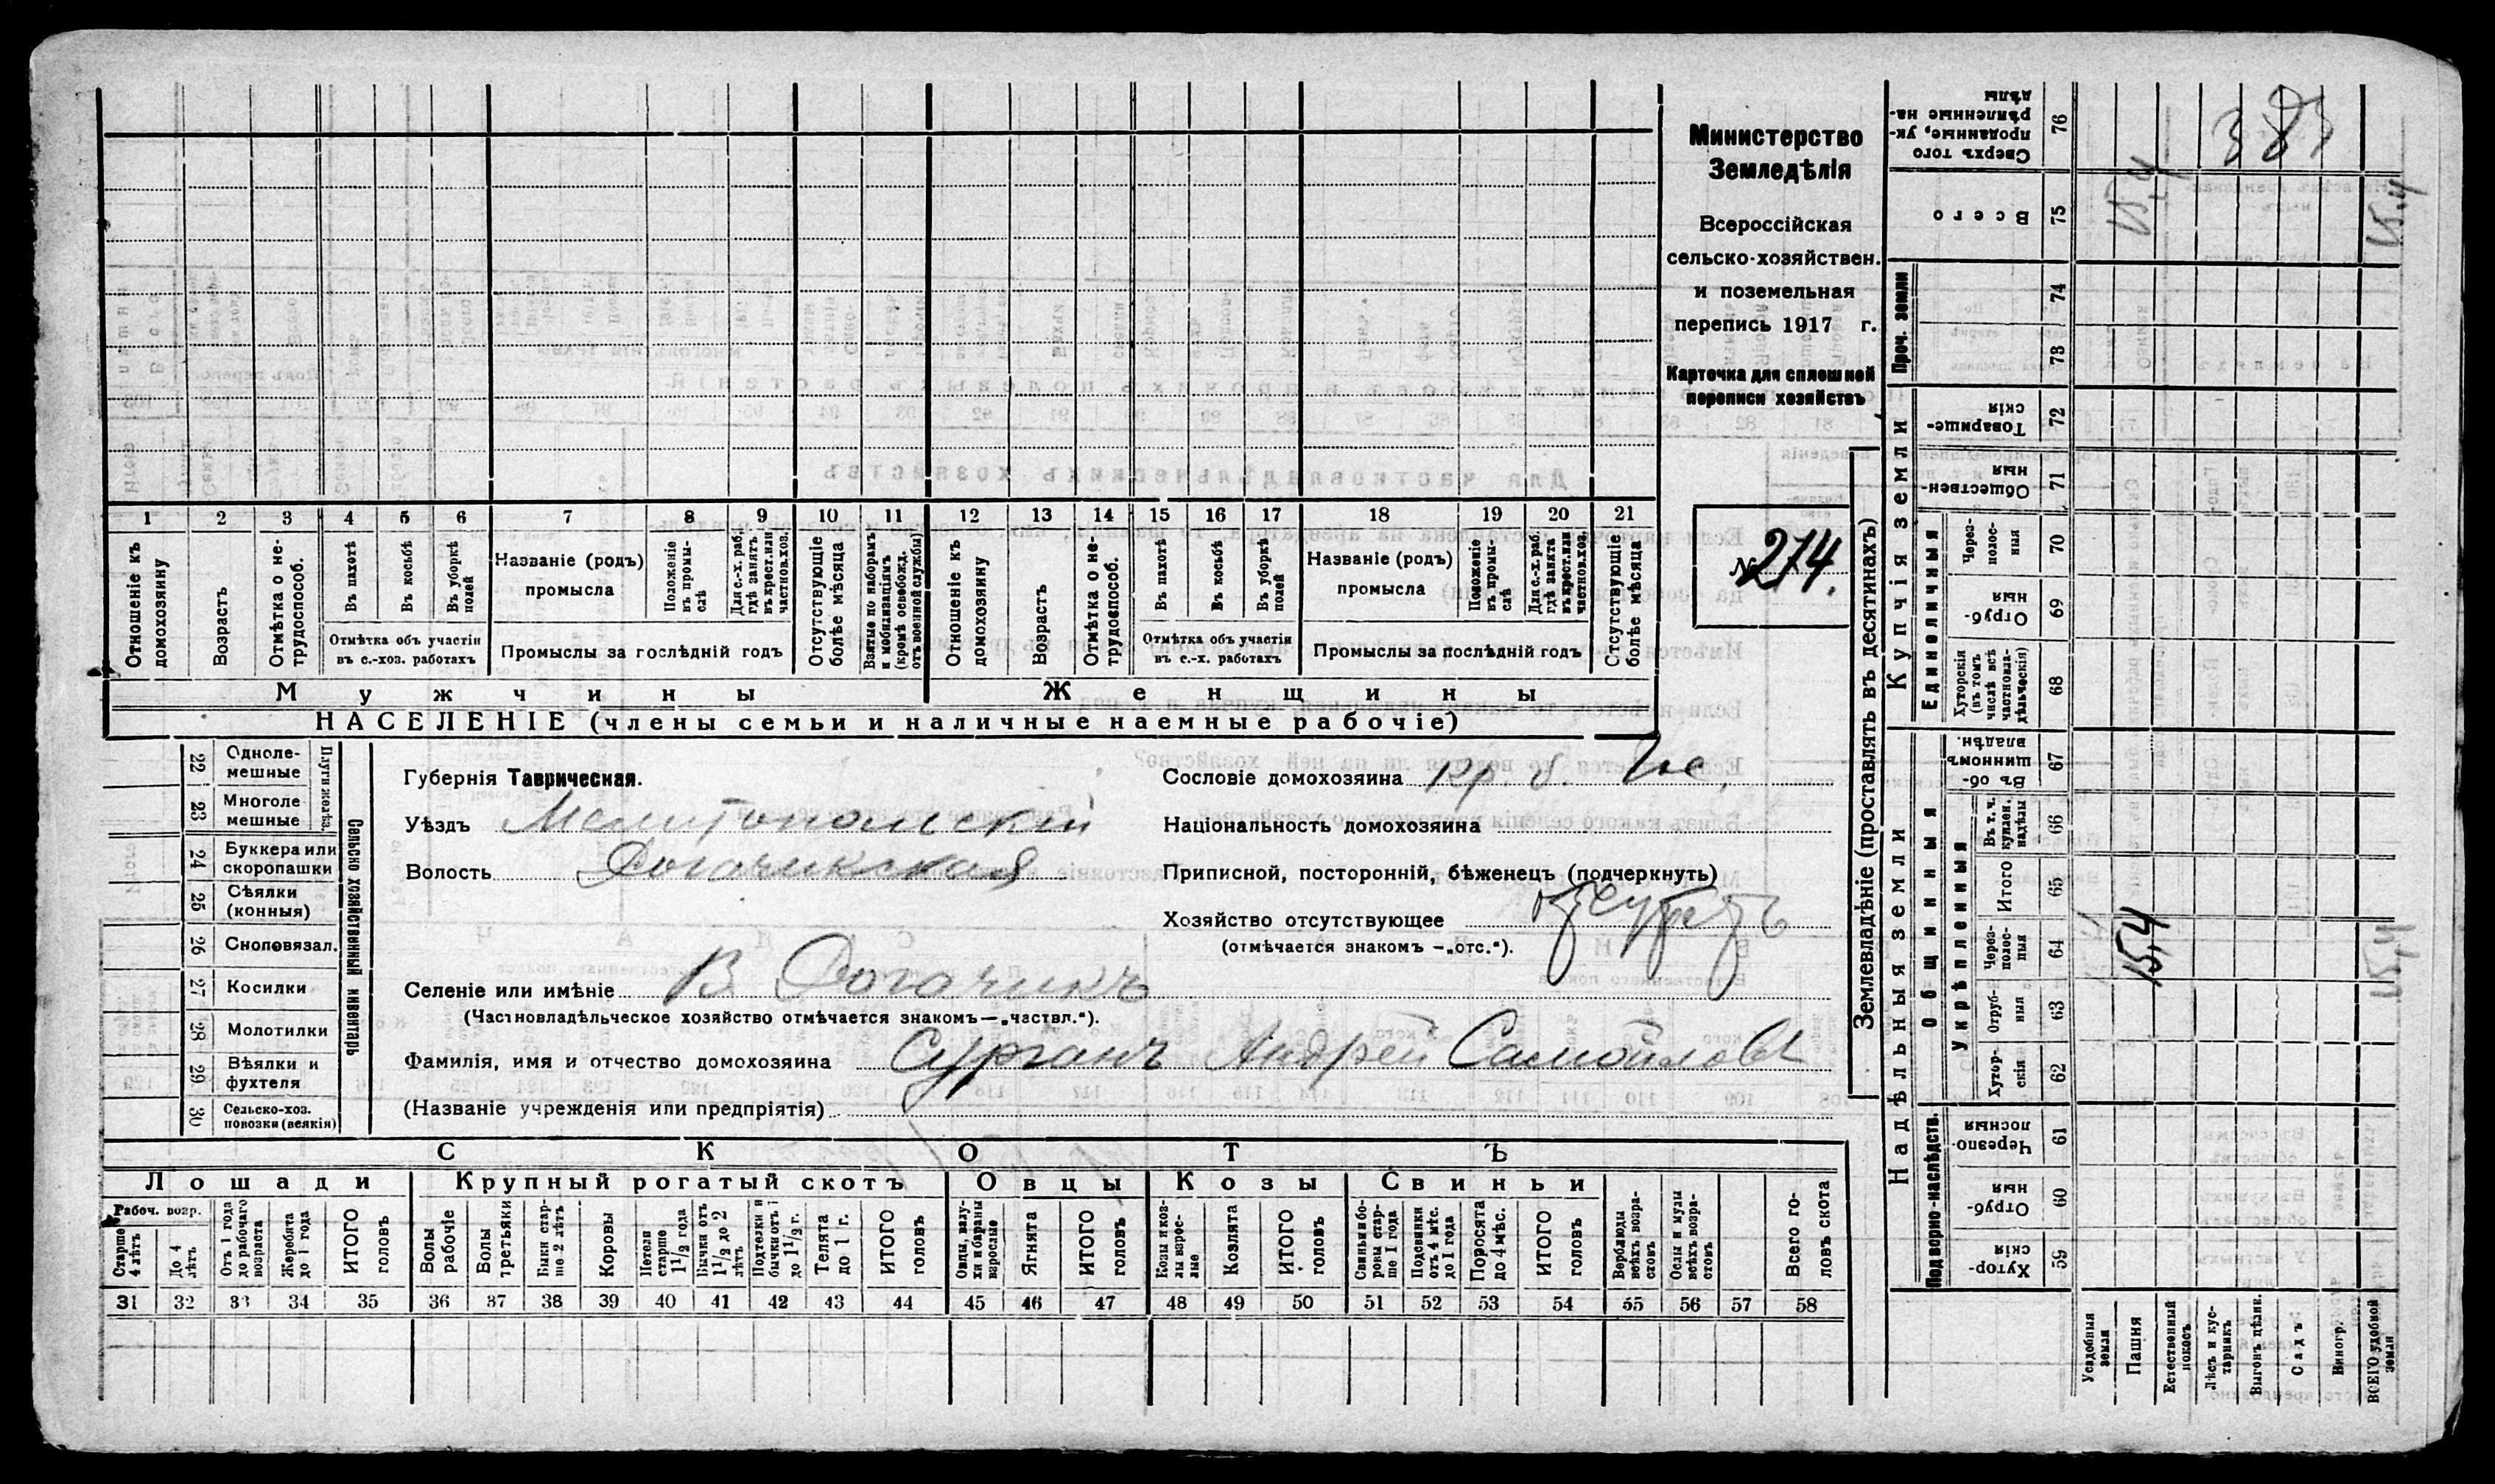 Министерство
Земледѣлія
Всероссійская
сельско-хозяйствен.
и поземельная
перепись 1917 г.
Карточка для сплошной
переписи хозяйствъ
№ 274.
1 2 3 4 5 6 7 8 9 10 11 12 13 14 15 16 17 18 19 20 21
Отношеніе къ домохозяину
Возрастъ
Отмѣтка о не-трудоспособ.
Въ пахотѣ
Въ косьбѣ
Въ уборкѣ полей
Отмѣтка объ участіи
въ с.-хоз. работахъ
Названіе (родъ)
промысла
Положеніе въ промы-слѣ
Для с.-х. раб. гдѣ занятъ въ крест. или частнов. хоз.
Промыслы за послѣдній годъ
Отсутствующіе болѣе мѣсяца
Взятые по наборамъ и мобилизаціямъ (кромѣ освобожд. отъ военной службы)
Отношеніе къ домохозяину
Возрастъ
Отмѣтка о не-трудоспособ.
Въ пахотѣ
Въ косьбѣ
Въ уборкѣ полей
Отмѣтка объ участіи
въ с.-х. работахъ
Названіе (родъ)
промысла
Положеніе въ промы-слѣ
Для с.-х. раб. гдѣ занята въ крест. или частнов. хоз.
Промыслы за послѣдній годъ
Отсутствующіе болѣе мѣсяца
Мужчины Женщины
НАСЕЛЕНІЕ (члены семьи и наличные наемные рабочіе)
Сельско хозяйственный инвентарь
Плуги желѣз.
22 Одноле-мешные
23 Многоле мешные
24 Буккера или скоропашки
25 Сѣялки (конныя)
26 Сноповязал.
27 Косилки
28 Молотилки
29 Вѣялки и фухтеля
30 Сельско-хоз. повозки (всякія)
Губернія Таврическая.
Уѣздъ Мелитопольскій
Волость Рогачикская
Селеніе или имѣніе В Рогачикъ
(Частновладѣльческое хозяйство отмѣчается знакомъ—„частвл.“).
Фамилія, имя и отчество домохозяина Сурганъ Андрей Самойлов
(Названіе учрежденія или предпріятія)
Сословіе домохозяина кр.
Національность домохозяина
Приписной, посторонній, бѣженецъ (подчеркнуть)
Хозяйство отсутствующее
(отмѣчается знакомъ —„отс.“).
СКОТЪ
Лошади Крупный рогатый скотъ Овцы Козы Свиньи
Рабоч. возр.
Старше 4 лѣтъ
До 4 лѣтъ
Отъ 1 года до рабочаго возраста
Жеребята до 1 года
ИТОГО головъ
Волы рабочіе
Волы третьяки
Быки стар-ше 2 лѣтъ
Коровы
Нетели старше 1 1/2 года
Бычки отъ 1 1/2 до 2 лѣтъ
Подтелки и бычки отъ 1 до 1 1/2 г.
Телята до 1 г.
ИТОГО головъ
Овцы, валу-хи и бараны взрослые
Ягнята
ИТОГО головъ
Козы и коз-лы взрос-лые
Козлята
ИТОГО головъ
Свиньи и бо-ровы стар-ше 1 года
Подсвинки отъ 4 мѣс. до 1 года
Поросята до 4 мѣс.
ИТОГО головъ
Верблюды всѣхъ возра-стовъ
Ослы и мулы всѣхъ возра-стовъ
Всего го-ловъ скота
31 32 33 34 35 36 37 38 39 40 41 42 43 44 45 46 47 48 49 50 51 52 53 54 55 56 57 58
Землевладѣніе (проставлять въ десятинахъ)
Надѣльныя земли
Купчія земли
Проч. земли
Подворно-наслѣдств.
Общинныя
Укрѣпленныя
Единоличныя
Сверхъ того проданные, ук-рѣпленные на-дѣлы 76
Всего 75 15,4 15,4
74
73
Товарище-скія 72
Обществен-ныя 71
Через-полос-ныя 70
Отруб-ныя 69
Хуторскія (въ томъ числѣ всѣ частновла-дѣльческія) 68
Въ об-щинномъ владѣн. 67
Въ т. ч. куплен. надѣлы 66
Итого 65
Через-полос-ныя 64 15,4 15,4
Отруб-ныя 63
Хутор-скія 62
Черезпо-лосныя 61
Отруб-ныя 60
Хутор-скія 59
Усадебныя земля
Пашня
Естественный покосъ
Лѣсъ и кус-тарникъ
Выгонъ цѣлик.
Садъ
Виногр.
ВСЕГО удобной земли